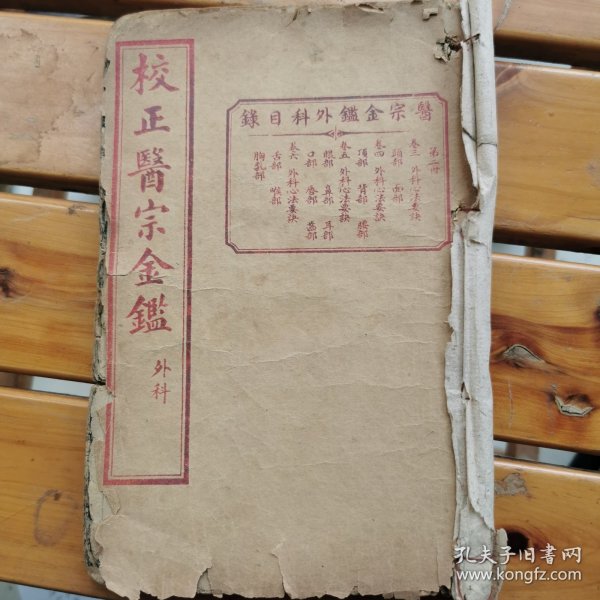 校正醫宗金鑑
外科
醫宗金鑑外科目錄
卷三 外科心法要訣
頭部 面部
卷四 外科心法要訣
項部 背部 腰部
卷五 外科心法要訣
眼部 鼻部 耳部
口部 唇部 齒部
卷六 外科心法要訣
舌部 喉部
胸乳部
孔夫子旧书网
www.kongfz.com